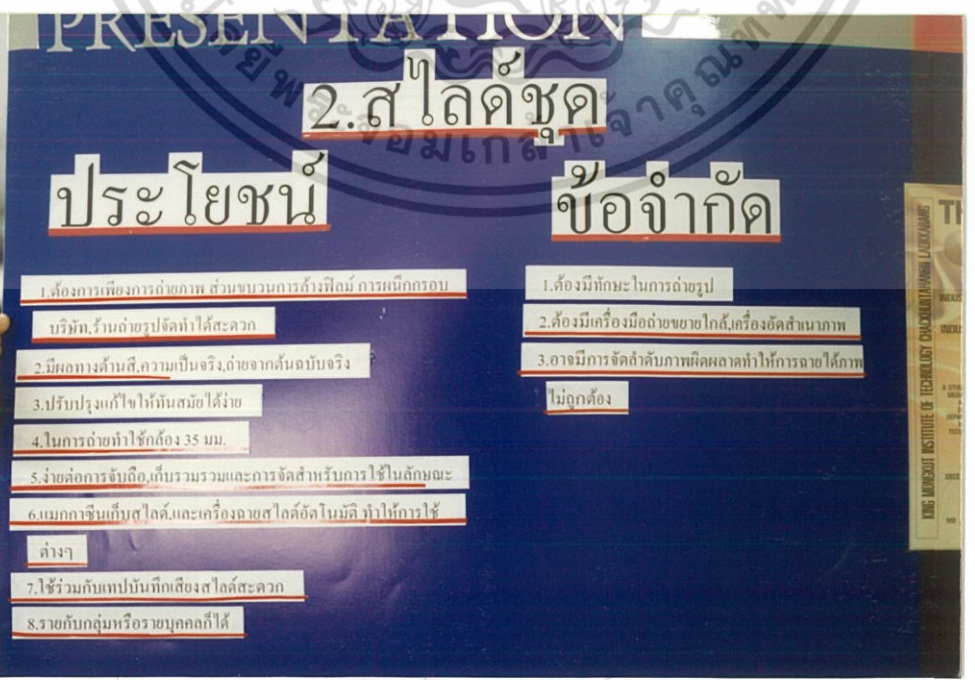 PRESENTATION
2.สไลด์ชุด
ประโยชน์
1.ต้องการเพียงการถ่ายภาพ ส่วนขบวนการล้างฟิลม์ การผนึกกรอบ
บริษัท,ร้านถ่ายรูปจัดทำได้สะดวก
2.มีผลทางด้านสี,ความเป็นจริง,ถ่ายจากต้นฉบับจริง
3.ปรับปรุงแก้ไขให้ทันสมัยได้ง่าย
4.ในการถ่ายทำใช้กล้อง 35 มม.
5.ง่ายต่อการจับถือ,เก็บรวมรวมและการจัดสำหรับการใช้ในลักษณะ
6.แมกกาซีนเก็บสไลด์,และเครื่องฉายสไลด์อัตโนมัติ ทำให้การใช้
ต่างๆ
7.ใช้ร่วมกับเทปบันทึกเสียงสไลด์สะดวก
8.รายกับกลุ่มหรือรายบุคคลก็ได้
ข้อจำกัด
1.ต้องมีทักษะในการถ่ายรูป
2.ต้องมีเครื่องมือถ่ายขยายใกล้,เครื่องอัดสำเนาภาพ
3.อาจมีการจัดลำดับภาพผิดพลาดทำให้การฉายได้ภาพ
ไม่ถูกต้อง
KING MONGKUT INSTITUTE OF TECHNOLOGY CHAOKHUNTAHAN LADKRABANG
พระจอมเกล้าเจ้าคุณท